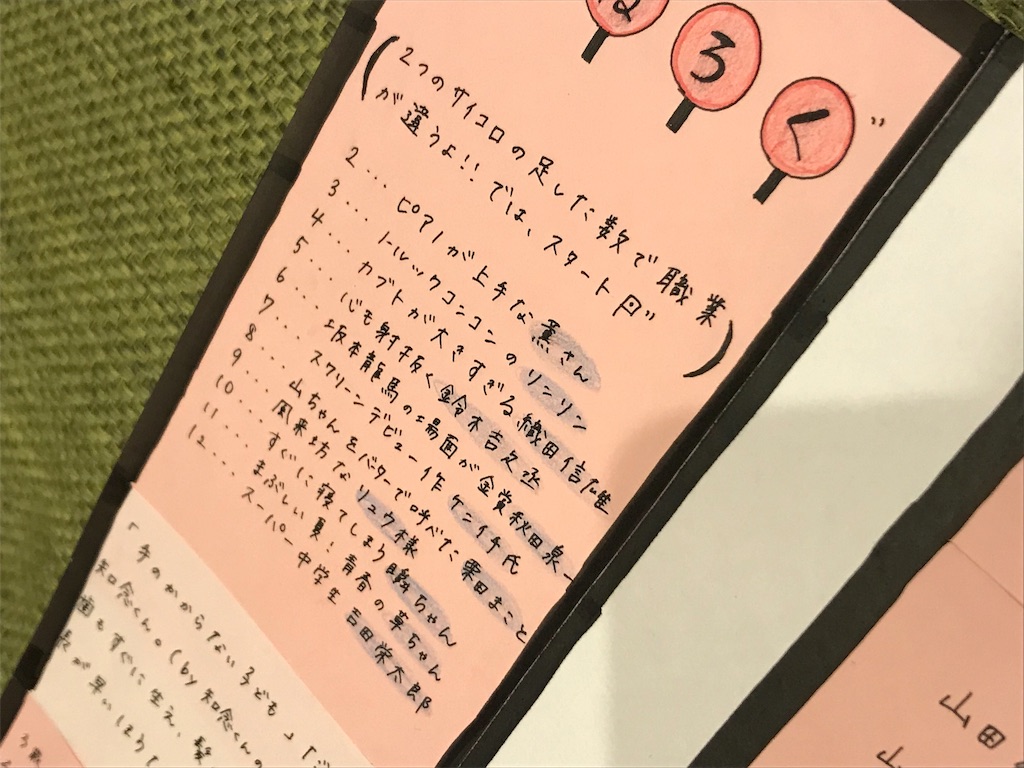 ろ
く”
（2つのサイコロの足した数で職業
が違うよ!!では、スタート円”）
2... ピアノが上手な薫さん
3... ノールックコンコンのリンリン
4... カブトが大きすぎる織田信雄
5.... 心も射手抜く鈴木吉之丞
6.... 坂本龍馬の場面が金賞秋田泉一
7.... スクリーンデビュー作ケンイチ氏
8.... 山ちゃんをバターで呼べた栗田まこと
9.... 風来坊なリュウ様
10.... すぐに寝てしまう瞬ちゃん
11.... まぶしい夏!青春の草ちゃん
12.... スーパー中学生吉田栄太郎
「手のかからない子ども」「
知念くん。(by 知念くんの
歯もすぐに生え、髪
長が早いほうで
山田